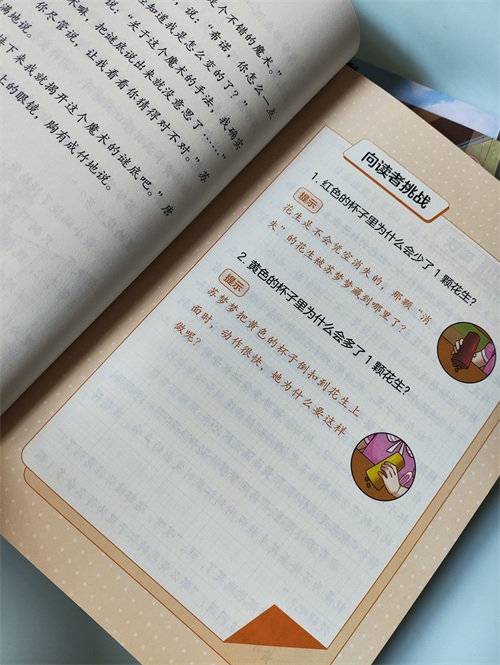 个不错的魔术。”
说：“希诺，你怎么一点
知道我是怎么变的了？”
说：“关于这个魔术的手法，我确实
，把谜底说出来就没意思了……”
你尽管说，让我看看你猜得对不对。”苏
满地说。
下来我就揭开这个魔术的谜底吧。”唐
上的眼镜，胸有成竹地说。
向读者挑战
1. 红色的杯子里为什么会少了 1 颗花生？
提示
花生是不会凭空消失的，那颗“消
失”的花生被苏梦梦藏到哪里了？
2. 黄色的杯子里为什么会多了 1 颗花生？
提示
苏梦梦把黄色的杯子倒扣到花生上
面时，动作很快，她为什么要这样
做呢？